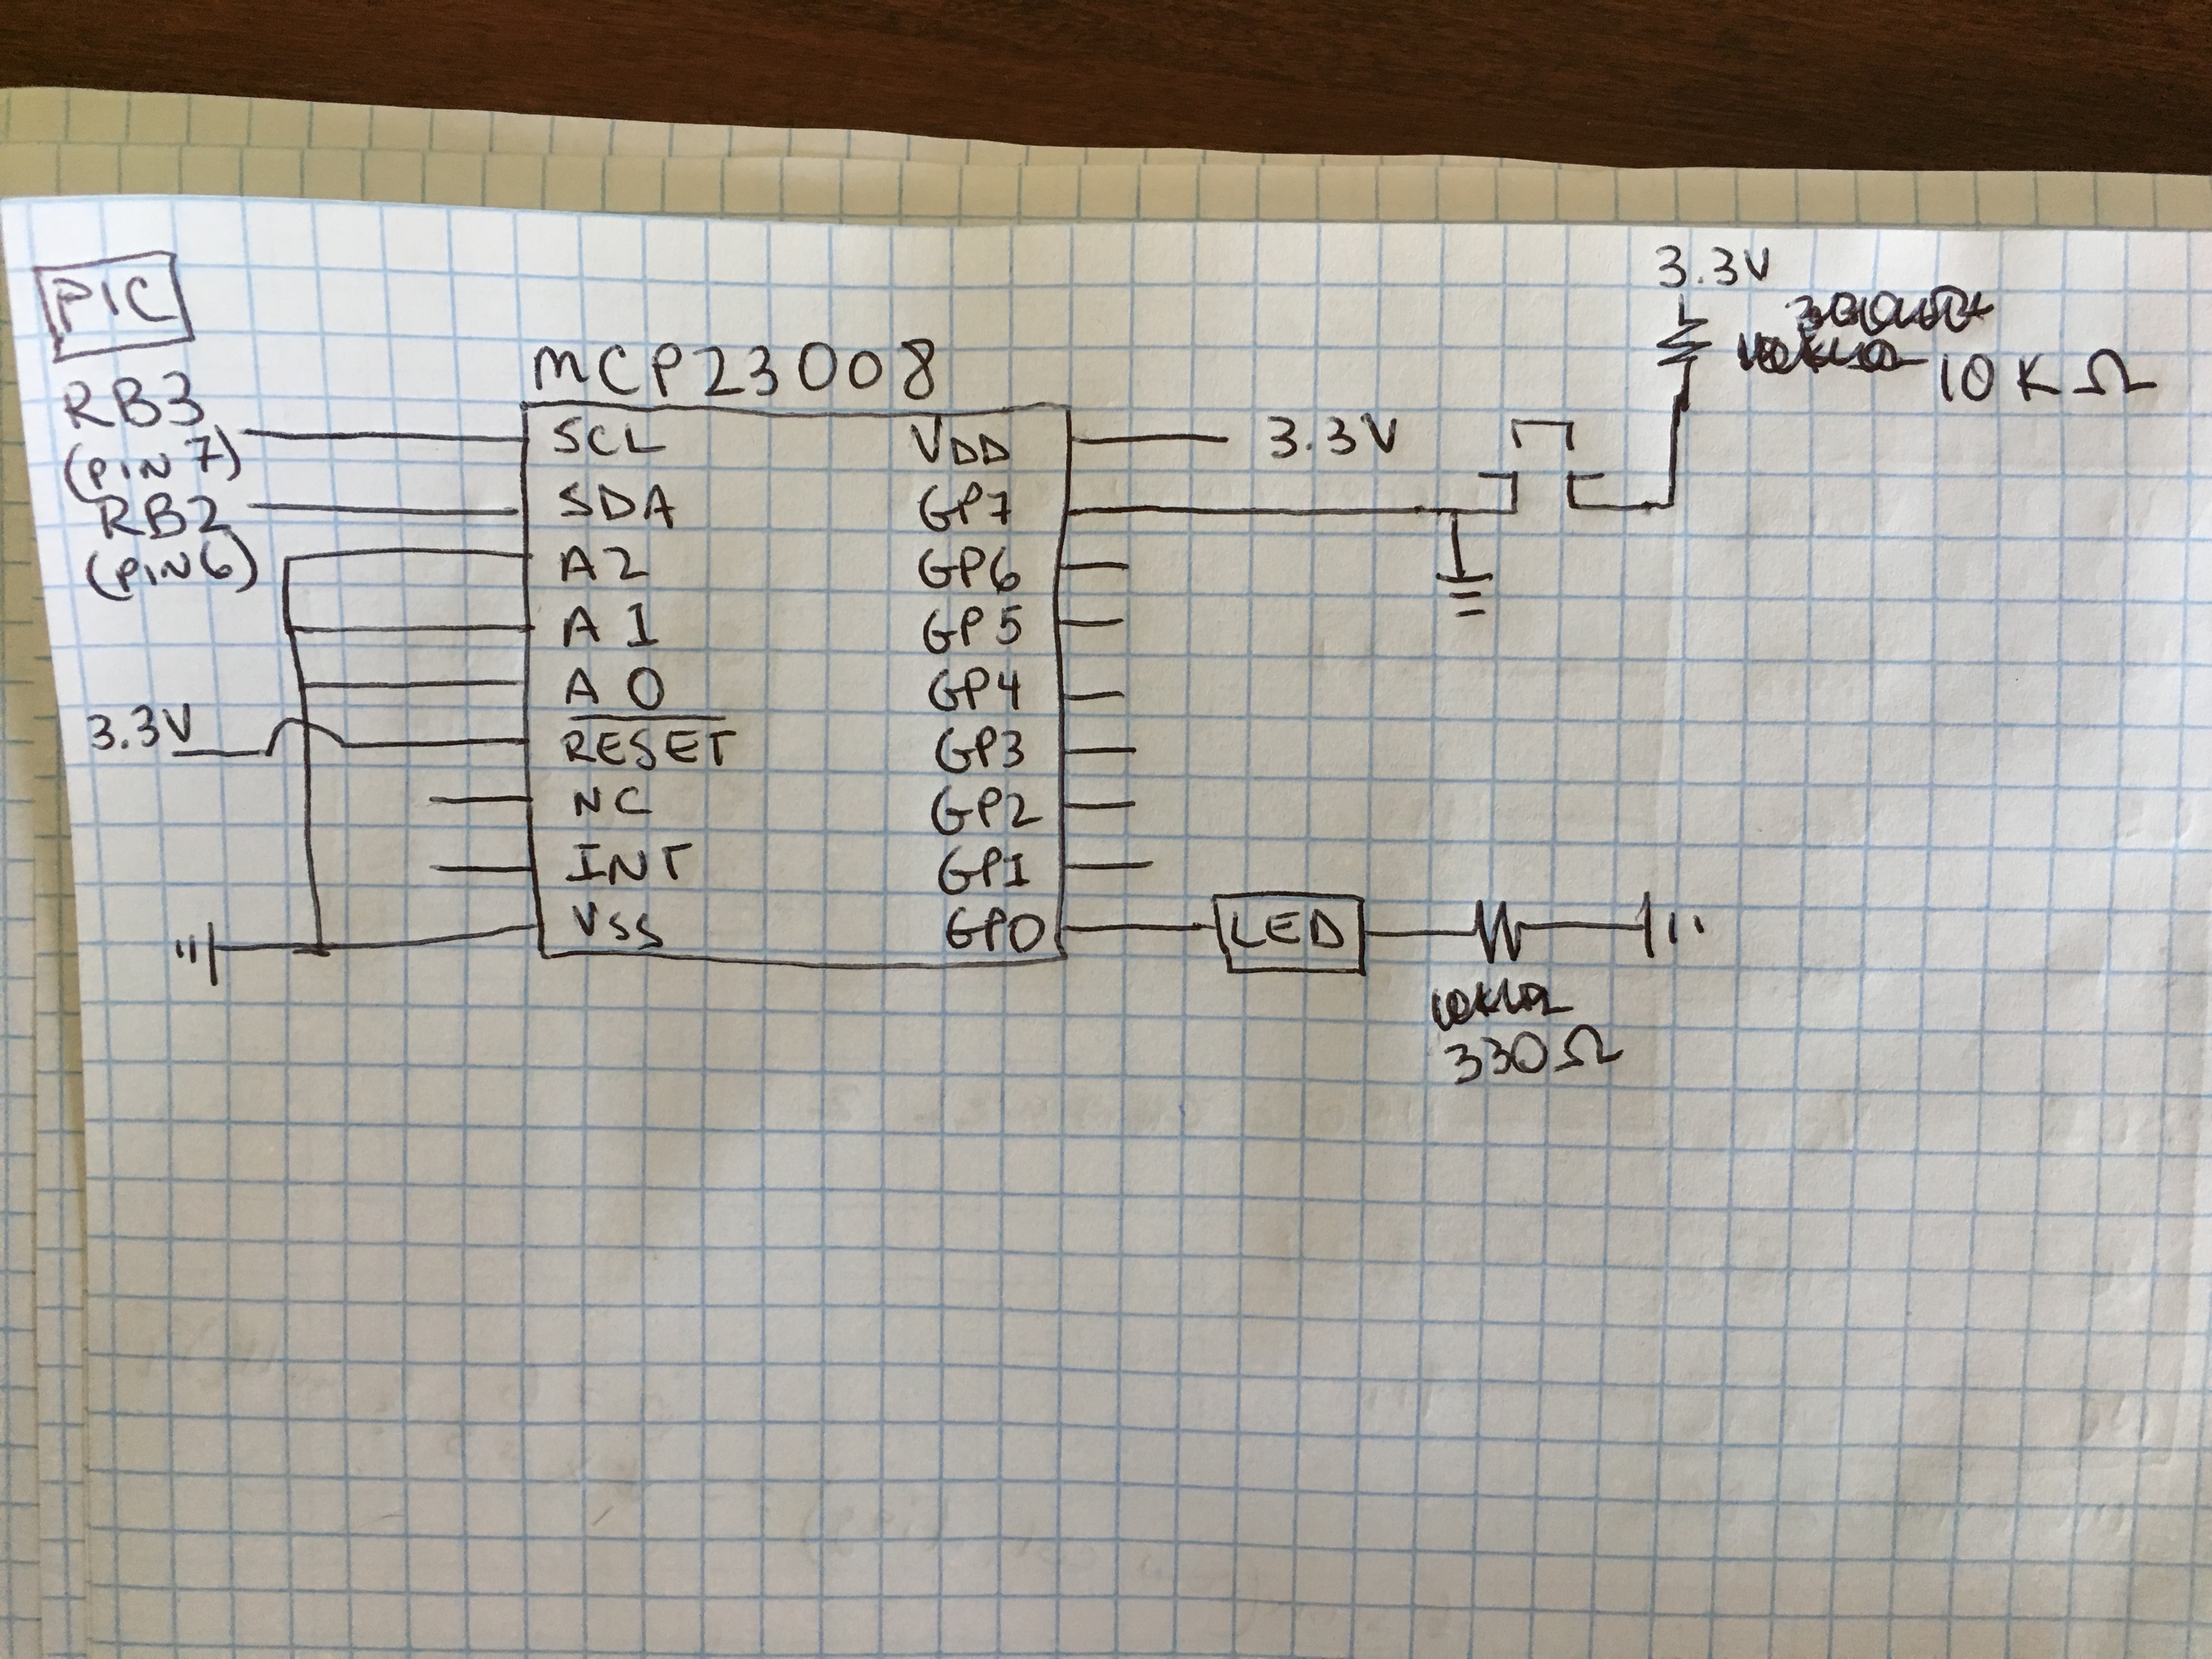 PIC
RB3
(PIN 7)
RB2
(PIN 6)
3.3V
MCP23008
SCL
SDA
A2
A1
A0
RESET
NC
INT
VSS
VDD
GP7
GP6
GP5
GP4
GP3
GP2
GP1
GP0
3.3V
3.3V
10KΩ
LED
330Ω